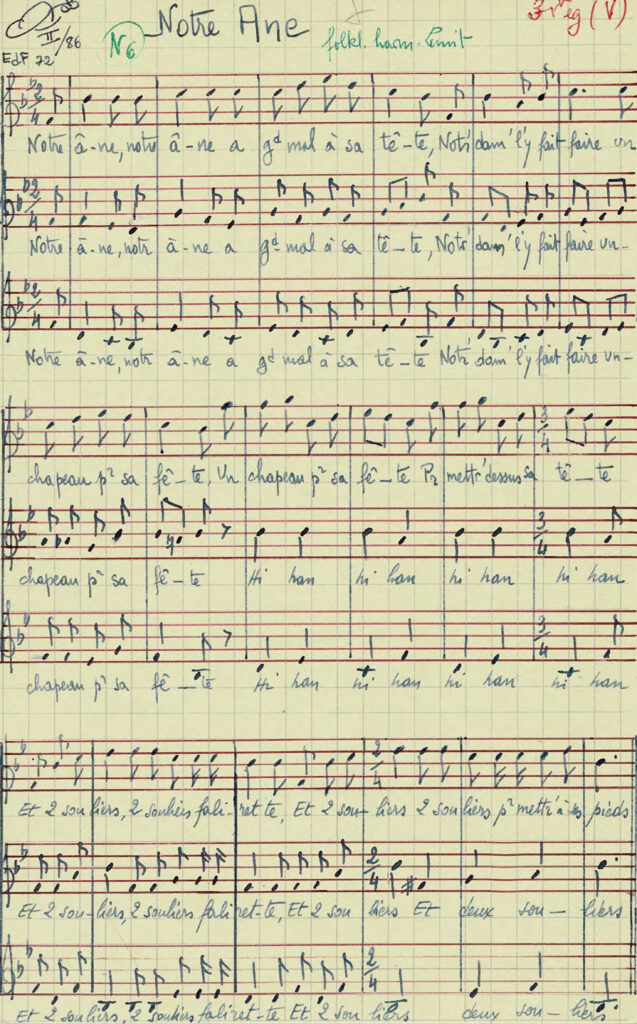 II/86
EdF 72
N6
Notre Ane
folkl. harm.
3 eg (V)
Notre â-ne, notre â-ne a gd mal à sa tê-te, Notr' dam' l'y fait faire un
Notre â-ne, notr â-ne a gd mal à sa tê-te, Notr' dam' l'y fait faire un-
Notre â-ne, notr â-ne a gd mal à sa tê-te Notr' dam' l'y fait faire un-
chapeau pr sa fê-te, Un chapeau pr sa fê-te Pr mettr' dessus sa tê-te
chapeau pr sa fê-te Hi han hi han hi han hi han
chapeau pr sa fê-te Hi han hi han hi han hi han
Et 2 souliers, 2 souliers fali-ret-te, Et 2 sou-liers 2 souliers pr mettr' à ses pieds
Et 2 sou-liers, 2 souliers faliret-te, Et 2 sou liers Et deux sou-liers
Et 2 souliers, 2 souliers faliret-te Et 2 sou liers deux sou-liers